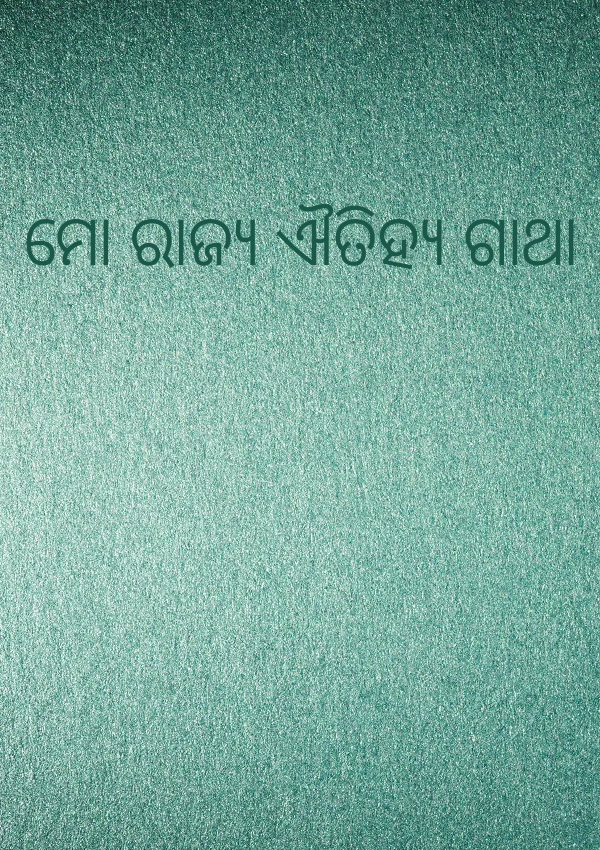 ମୋ ରାଜ୍ୟ ଐତିହ୍ୟ ଗାଥା